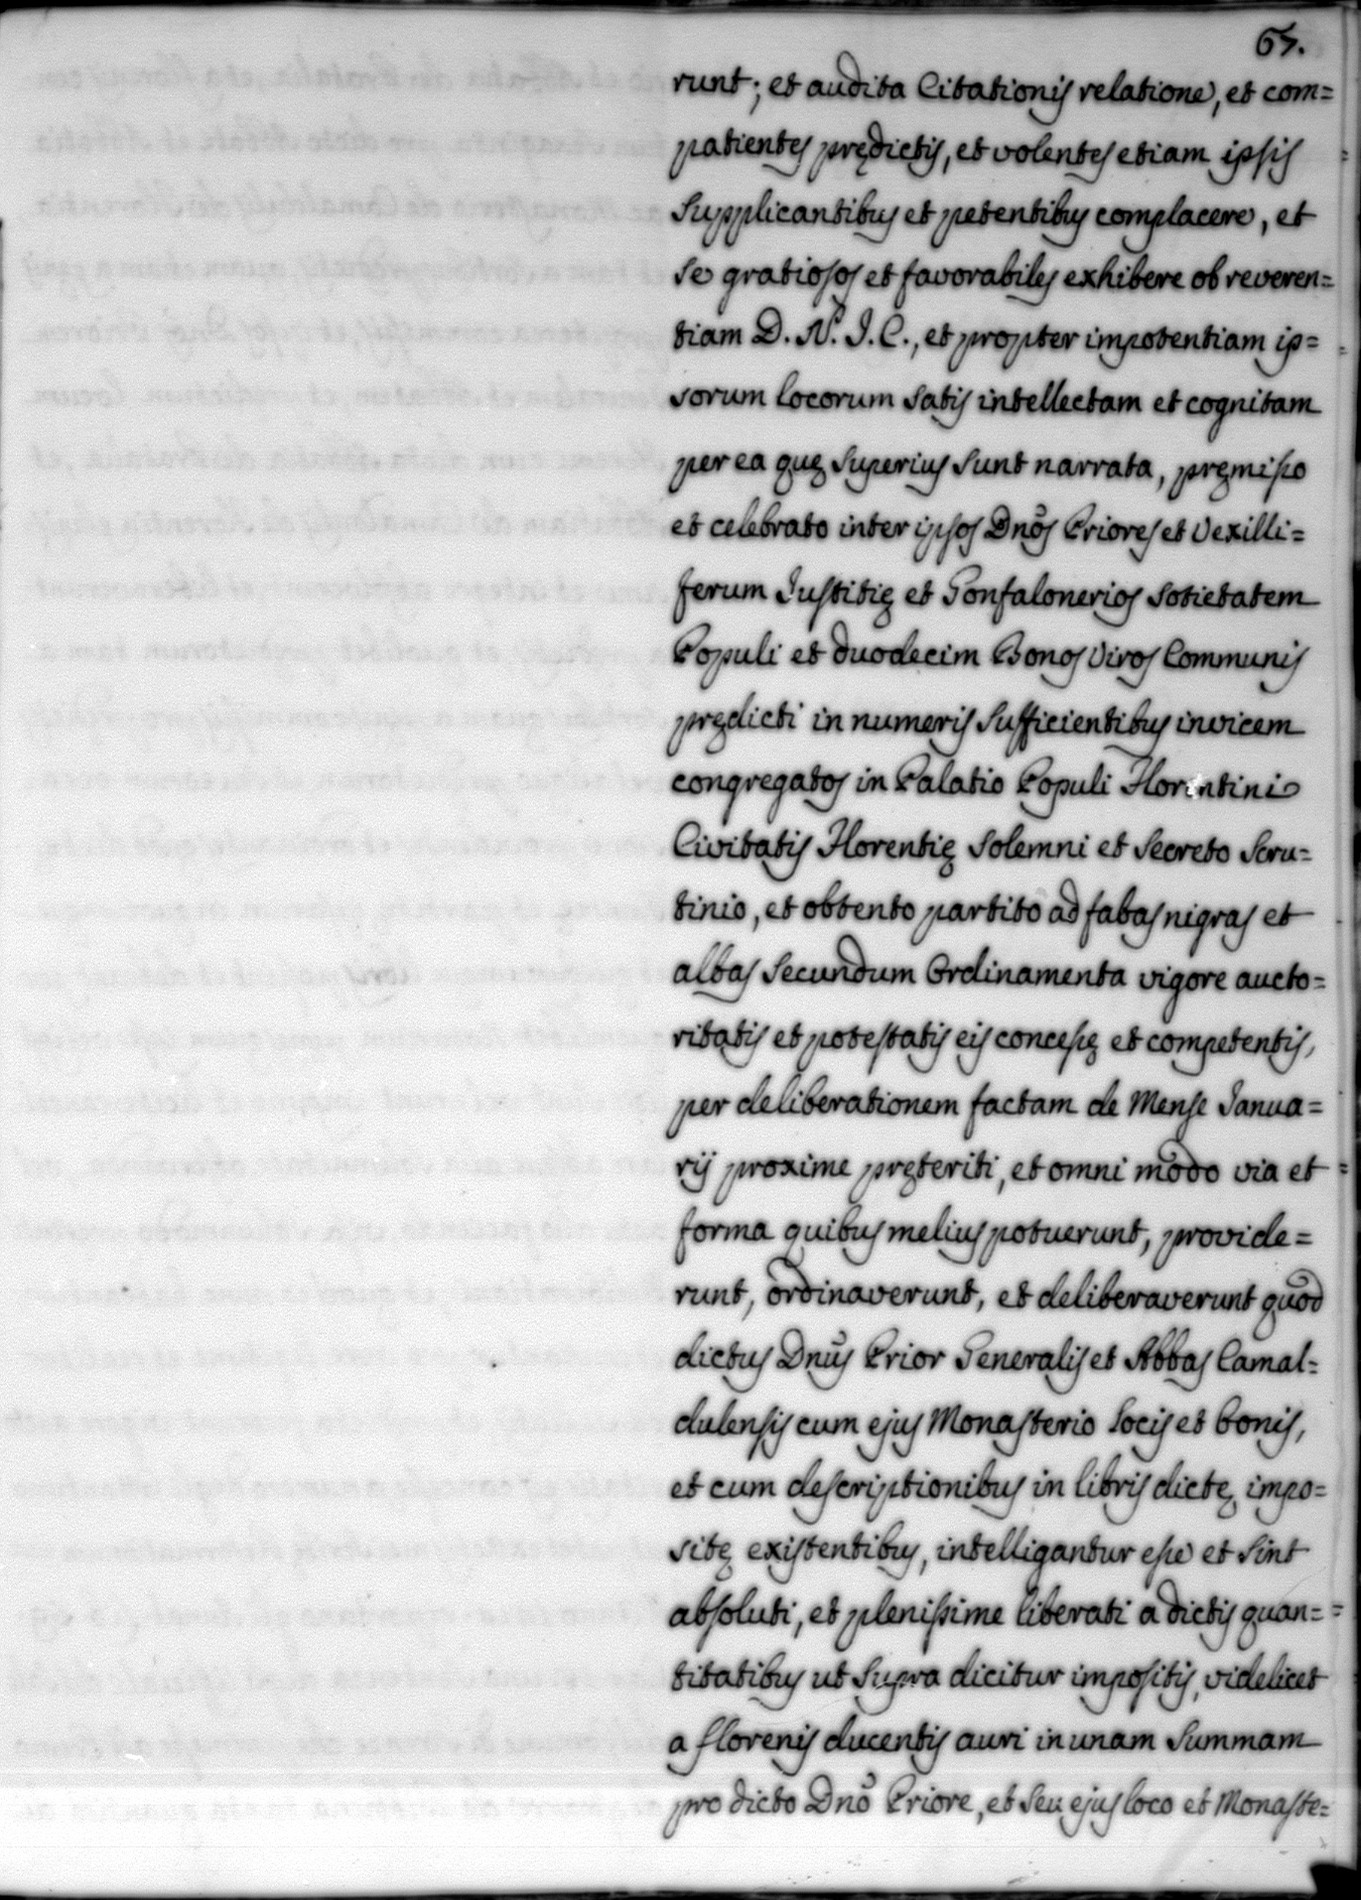 65.
runt; et audita Citationis relatione, et com=
patientes prędictis, et volentes etiam ipsis
Supplicantibus et petentibus complacere, et
se gratiosos et favorabiles exhibere ob reveren=
tiam D. N. J. C., et propter impotentiam ip=
sorum locorum satis intellectam et cognitam
per ea quę superius sunt narrata, pręmisso
et celebrato inter ipsos Dnos Priores et Vexilli=
ferum Justitię et Gonfalonerios sotietatem
Populi et duodecim Bonos Viros Communis
prędicti in numeris sufficientibus invicem
congregatos in Palatio Populi Florentini
Civitatis Florentię solemni et secreto scru=
tinio, et obtento partito ad fabas nigras et
albas secundum Ordinamenta vigore aucto=
ritatis et potestatis eis concessę et competentis,
per deliberationem factam de Mense Janua=
rij proxime pręteriti, et omni modo via et
forma quibus melius potuerunt, provide=
runt, ordinaverunt, et deliberaverunt quod
dictus Dnus Prior Generalis et Abbas Camal=
dulensis cum ejus Monasterio locis et bonis,
et cum descriptionibus in libris dictę impo=
sitę existentibus, intelligantur esse et sint
absoluti, et plenissime liberati a dictis quan=
titatibus ut supra dicitur impositis, videlicet
a florenis ducentis auri in unam summam
pro dicto Dno Priore, et seu ejus loco et Monaste=